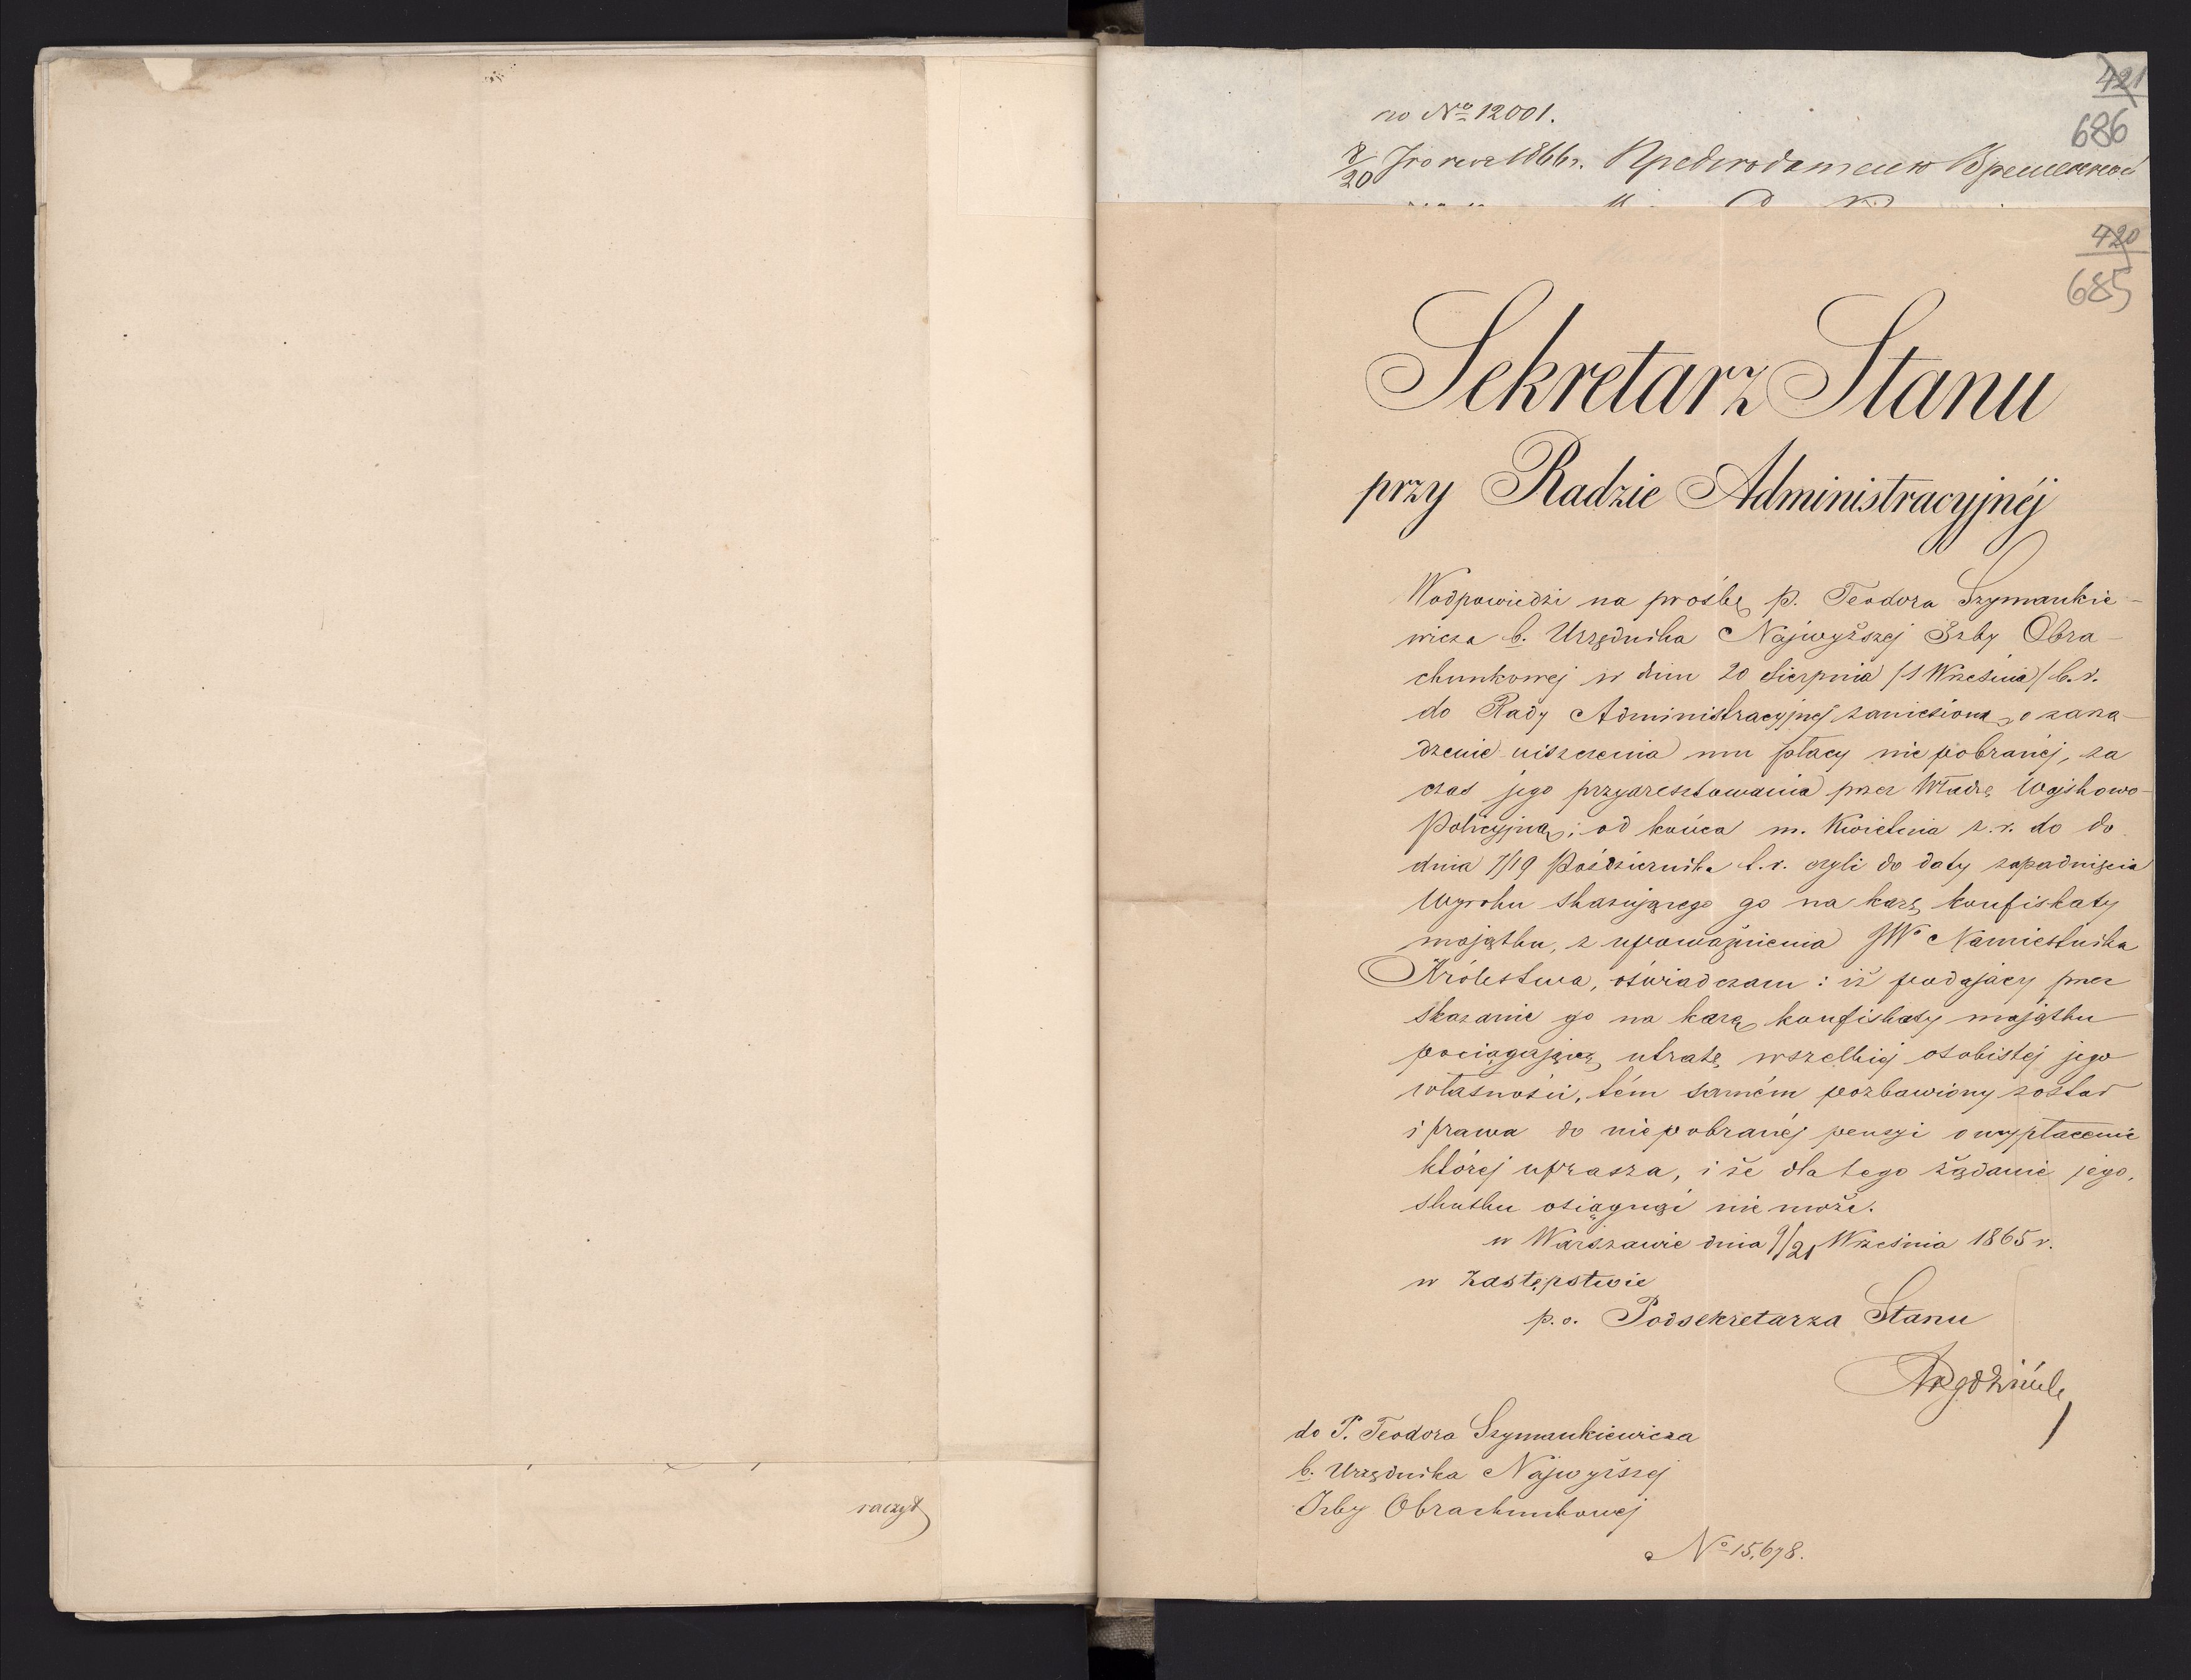 raczył
421
686
по № 12001.
8/20 Іюня 1866 г. Председателю Временной
420
685
Sekretarz Stanu
przy Radzie Administracyjnéj
W odpowiedzi na prośbę p. Teodora Szymankie-
wicza b. Urzędnika Najwyższej Izby Obra-
chunkowej w dniu 20 Sierpnia /1 Września/ b.r.
do Rady Administracyjnej zaniesioną, o zarzą-
dzenie uiszczenia mu płacy nie pobranéj, za
czas jego przyaresztowania przez Władzę Wojskowo-
Policyjną; od końca m. Kwietnia z.r. do do
dnia 7/19 Października t.r. czyli do daty zapadnięcia
Wyroku skazującego go na karę konfiskaty
majątku, z upoważnienia JW Namiestnika
Królestwa, oświadczam: iż podający przez
skazanie go na karę konfiskaty majątku
pociągającą utratę wszelkiej osobistéj jego
własności, tém samém pozbawiony został
i prawa do niepobranéj pensyi o wypłacenie
której uprasza, i że dla tego żądanie jego,
skutku osiągnąć nie może.
w Warszawie dnia 9/21 Września 1865 r.
w Zastępstwie
p.o. Podsekretarza Stanu
do P. Teodora Szymankiewicza
b. Urzędnika Najwyższej
Izby Obrachunkowej
№ 15,678.